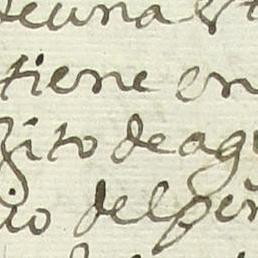 deuna
tiene en
zito de ag
io del peñ